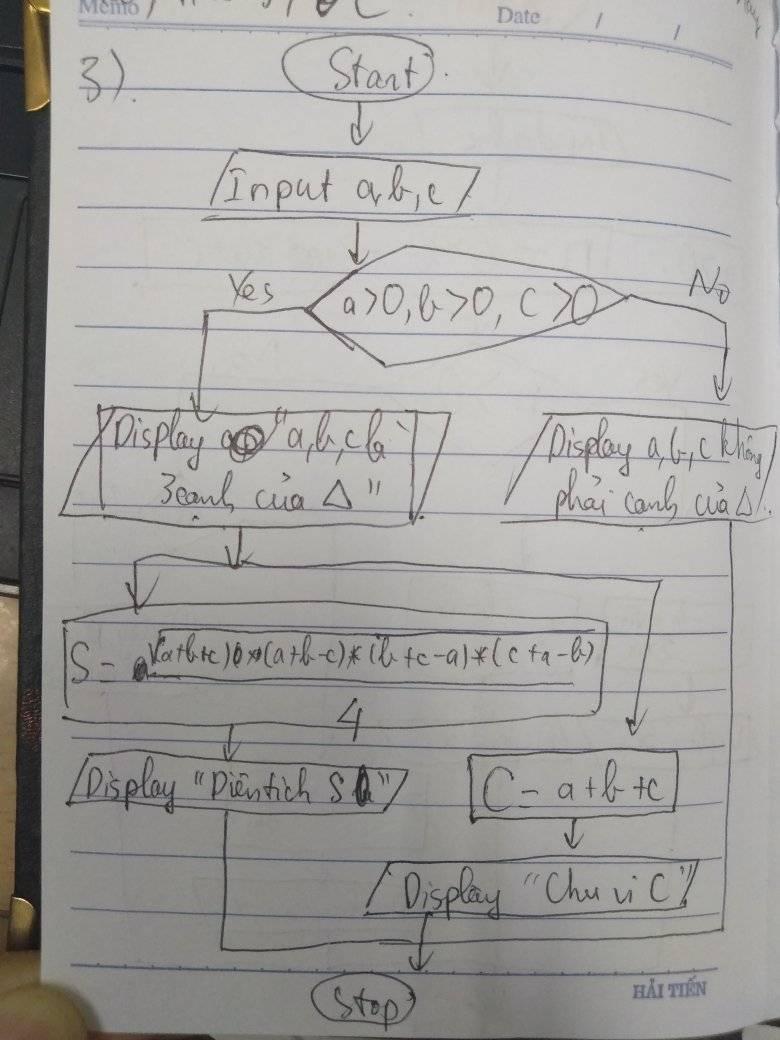 Memo
Date / /
3).
Start
Input a,b,c
Yes
No
a>0, b>0, c>0
Display "a,b,c là
3 cạnh của Δ"
Display a,b,c không
phải cạnh của Δ
S = √(a+b+c)*(a+b-c)*(b+c-a)*(c+a-b)
4
Display "Diện tích S"
C = a+b+c
Display "Chu vi C"
Stop
HẢI TIẾN